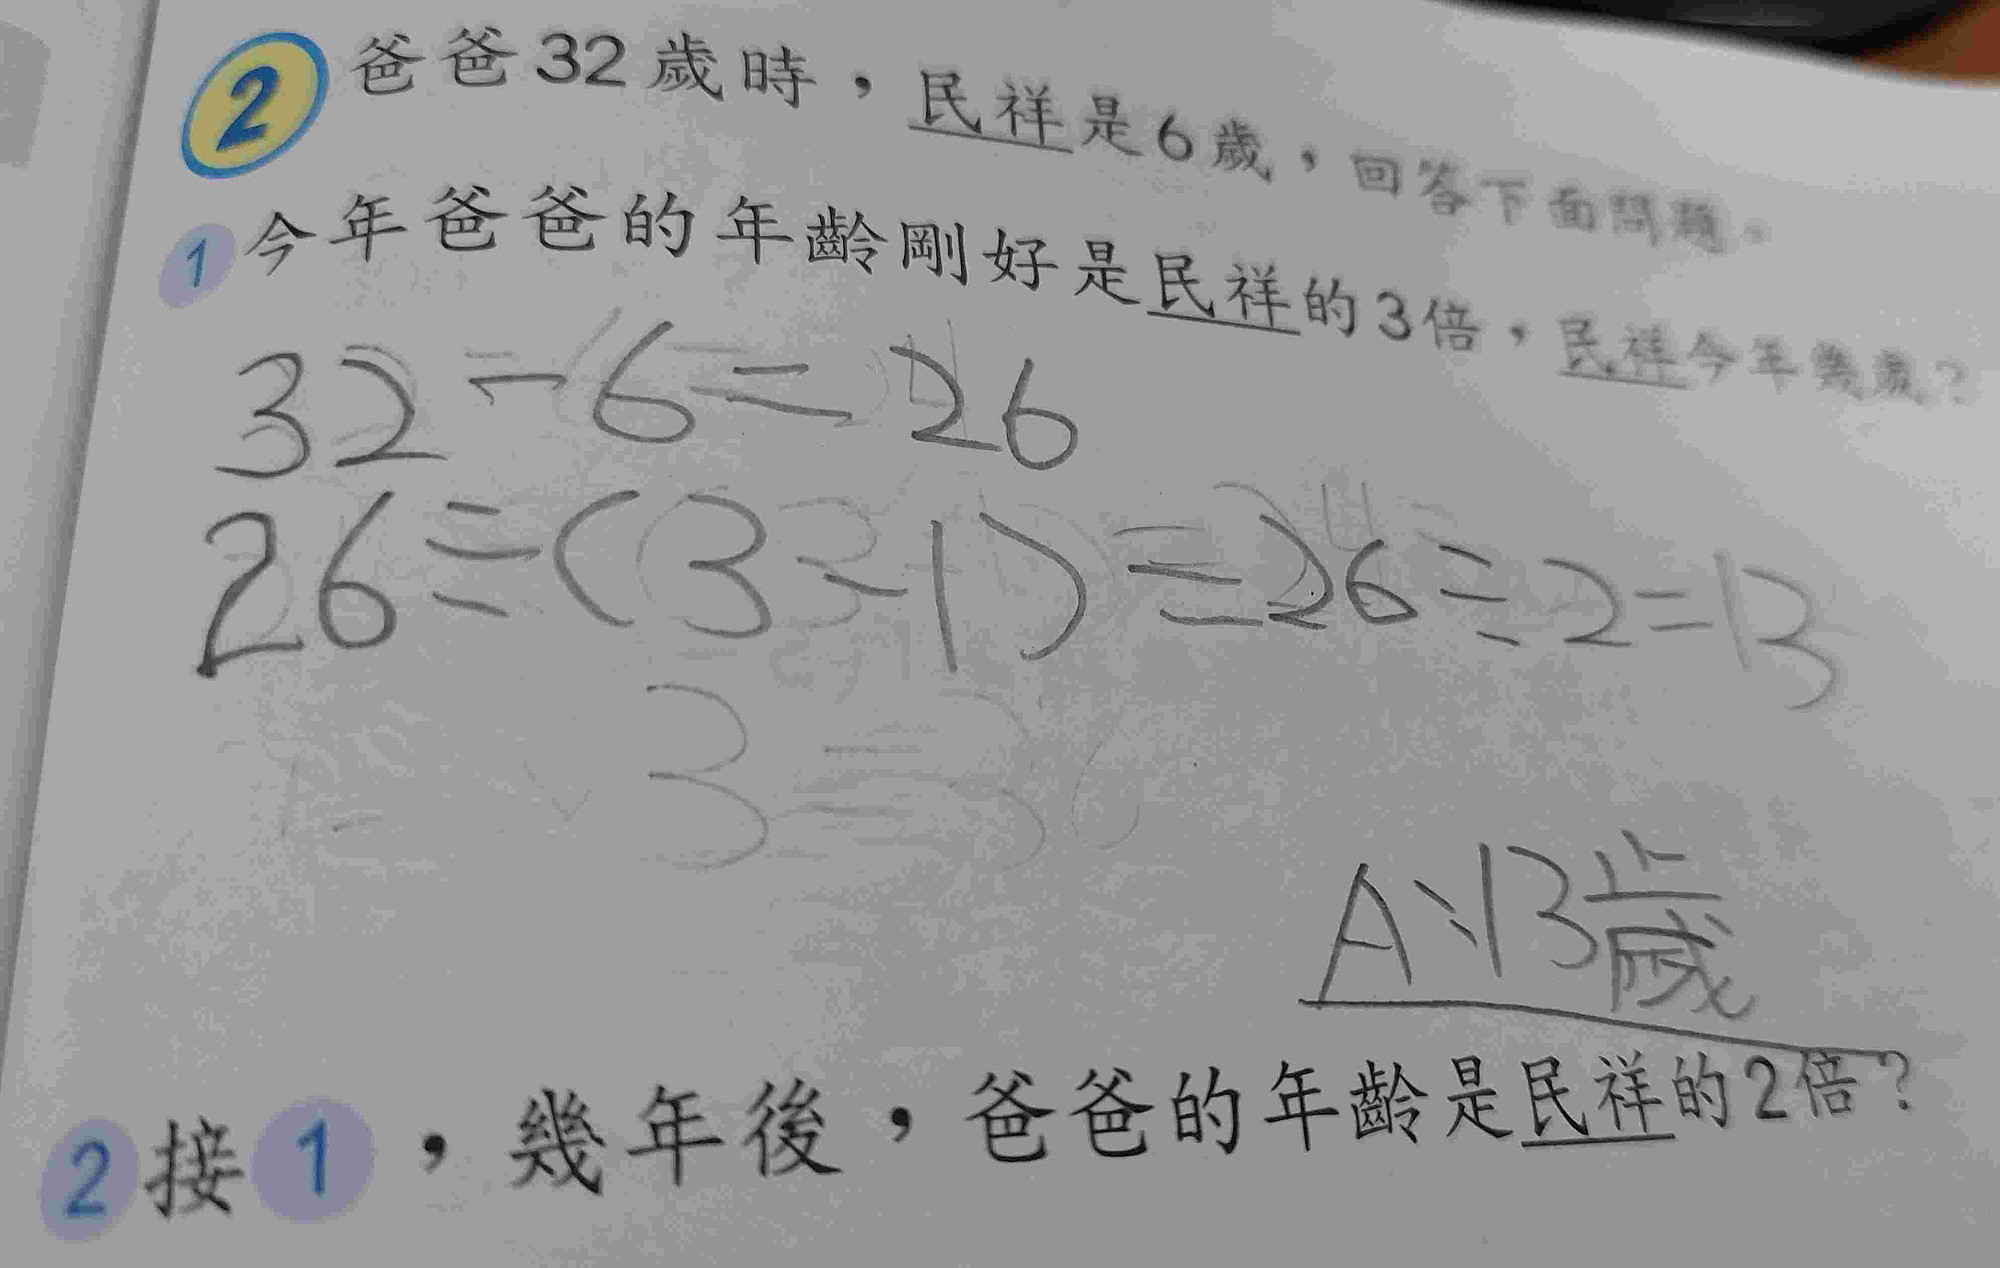 2 爸爸32歲時，民祥是6歲，回答下面問題。
1 今年爸爸的年齡剛好是民祥的3倍，民祥今年幾歲？
32-6=26
26÷(3-1)=26÷2=13
3=36
A:13歲
2 接1，幾年後，爸爸的年齡是民祥的2倍？